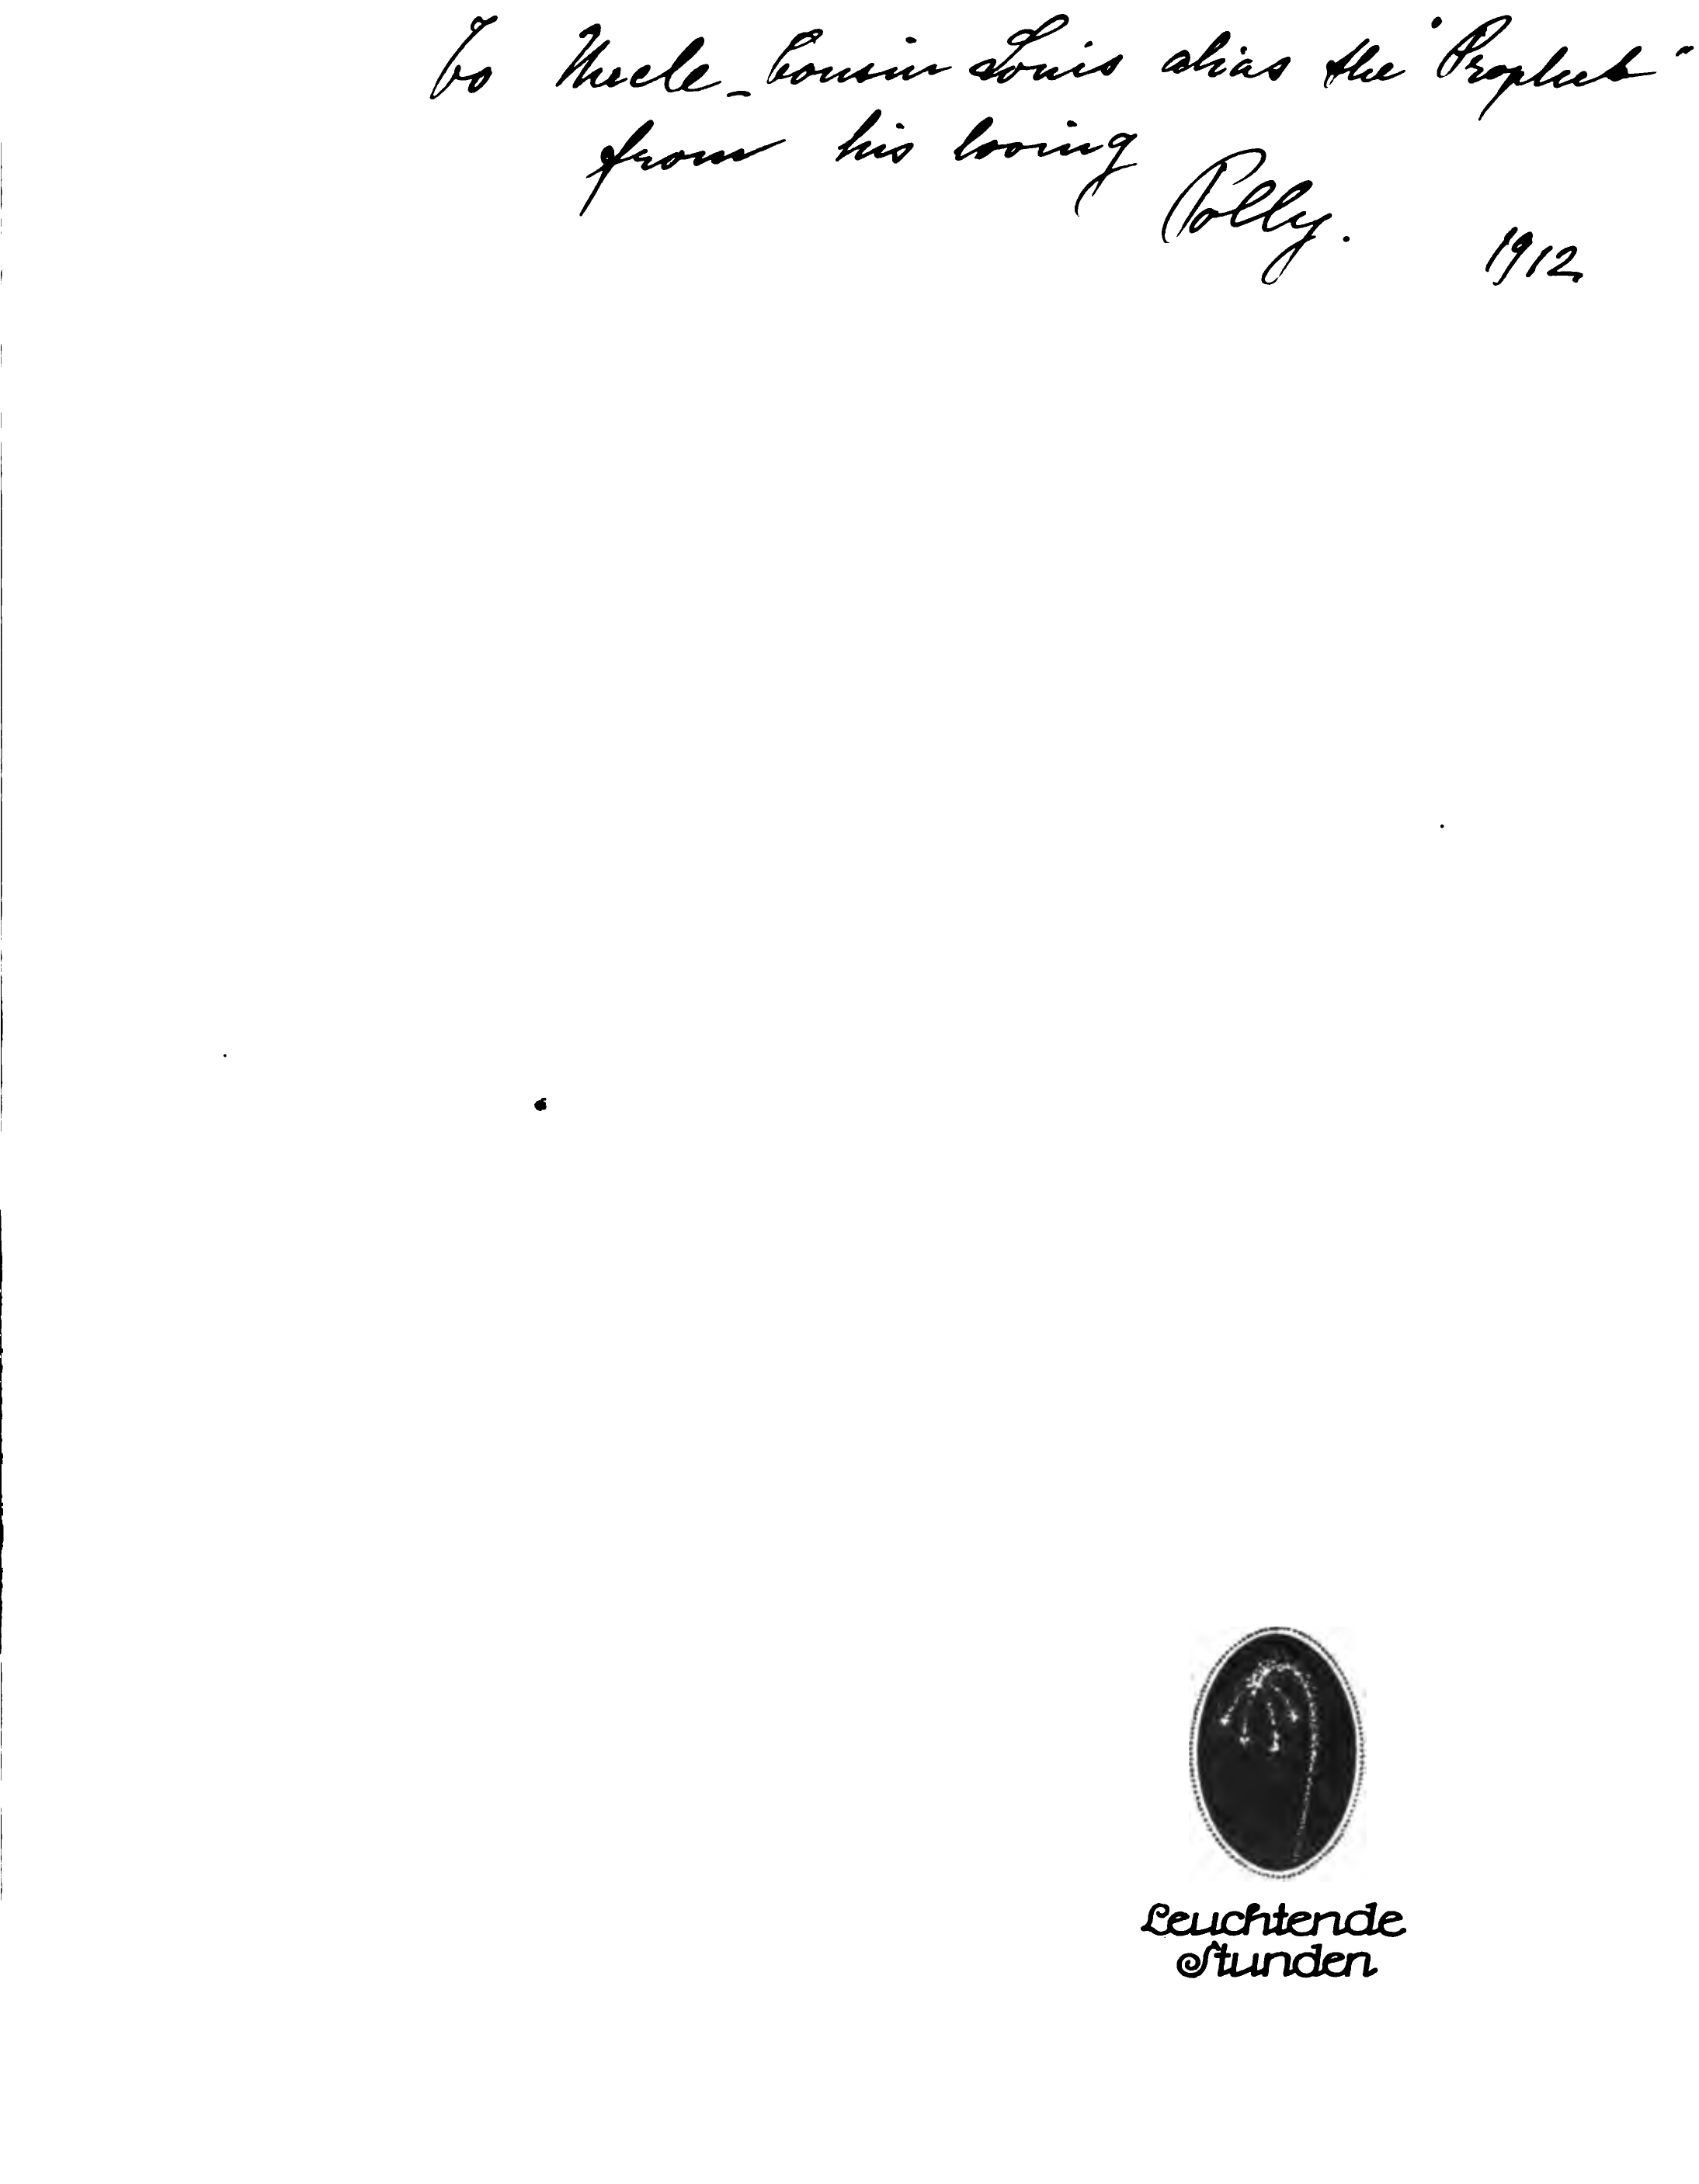 To Uncle-Cousin Louis alias the "Prophet"
from his loving
Polly.
1912
Leuchtende
Stunden